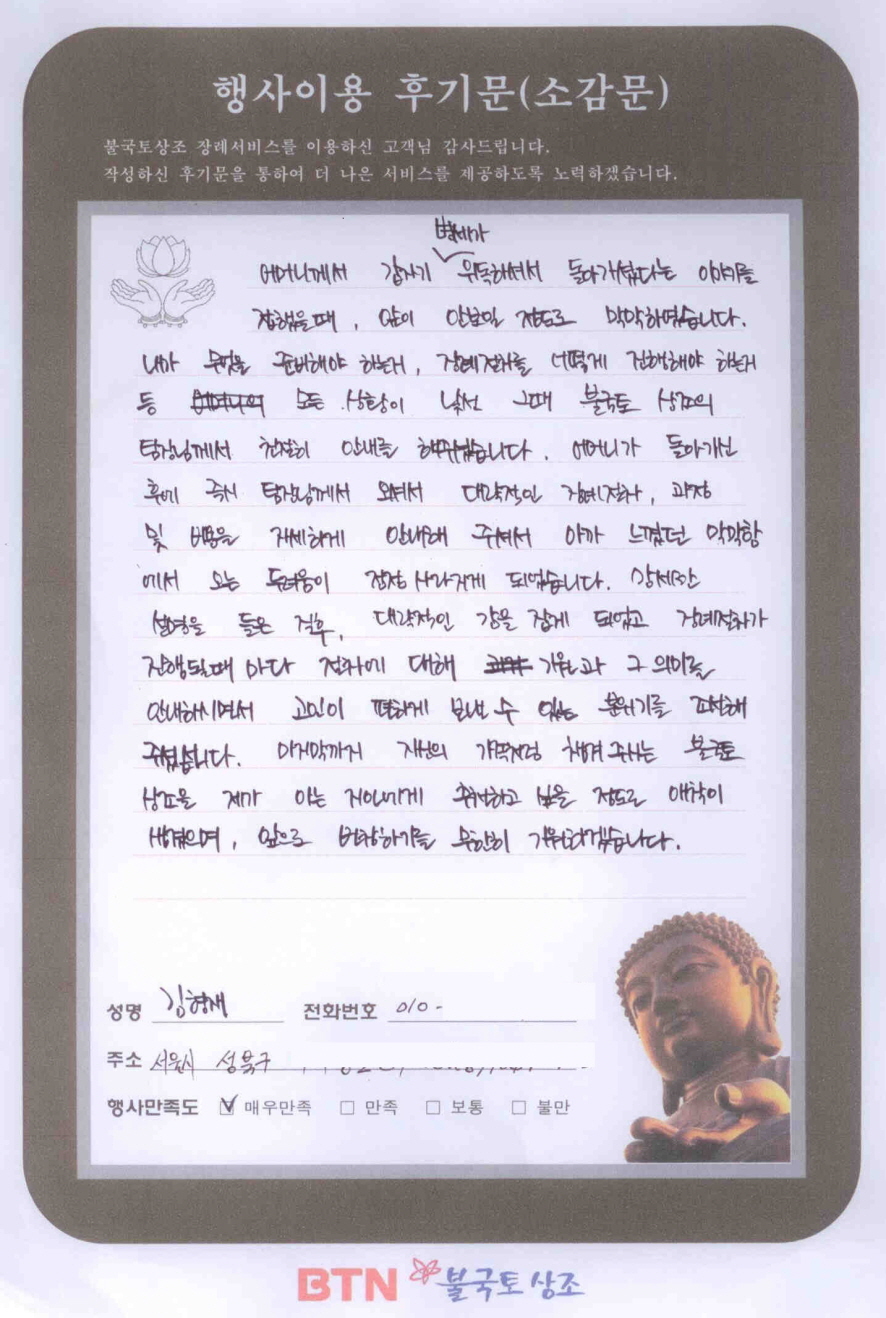 행사이용 후기문(소감문)
불국토상조 장례서비스를 이용하신 고객님 감사드립니다.
작성하신 후기문을 통하여 더 나은 서비스를 제공하도록 노력하겠습니다.
병세가
어머니께서 갑자기 위독하셔서 돌아가셨다는 이야기를
접했을때, 앞이 안보일 정도로 막막하였습니다.
내가 무엇을 준비해야 하는거, 장례절차를 어떻게 진행해야 하는거
등 모든 상황이 낯선 그때 불국토 상조의
팀장님께서 친절히 안내를 해주셨습니다. 어머니가 돌아가신
후에 즉시 팀장님께서 오셔서 대략적인 장례절차, 과정
및 비용을 자세하게 안내해 주셔서 아까 느꼈던 막막함
에서 오는 두려움이 점점 사라지게 되었습니다. 상세한
설명을 들은 직후, 대략적인 감을 잡게 되었고 장례절차가
진행될때 마다 절차에 대해 기원과 그 의미를
안내하시면서 고인이 편하게 보낼 수 있는 분위기를 조성해
주셨습니다. 마지막까지 자신의 가족처럼 챙겨 주시는 불국토
상조을 제가 아는 지인에게 추천하고 싶을 정도로 애착이
생겼으며, 앞으로 번창하기를 무한히 기원하겠습니다.
성명 김형새 전화번호 010-
주소 서울시 성북구
행사만족도 ☑ 매우만족 □ 만족 □ 보통 □ 불만
BTN 불국토상조